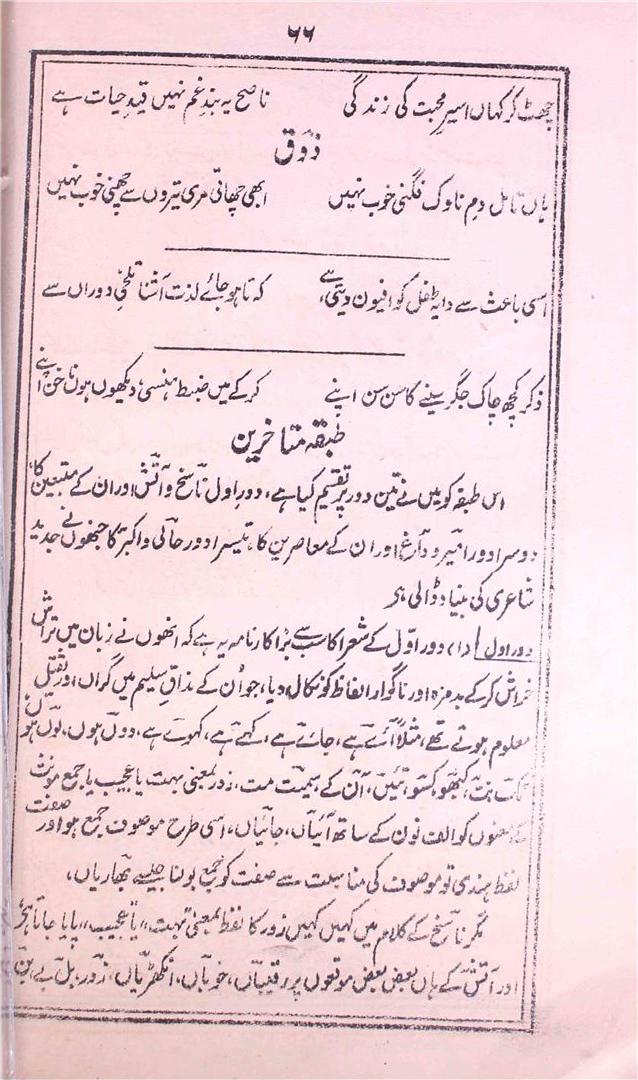 ۶۶
چھٹ کر کہاں اسیرِ محبت کی زندگی ناصح یہ بندِ غم نہیں قیدِ حیات ہے
ذوق
ہاں تامل دمِ ناوک فگنی خوب نہیں ابھی چھاتی مری تیروں سے چھنی خوب نہیں
اسی باعث سے دایہ طفل کو افیون دیتی ہے کہ تا ہو جائے لذت آشنا تلخیِ دوراں سے
ذکر کچھ چاک جگر سینے کا سن سن اپنے کر کے میں ضبط ہنسی، دیکھوں ہوں ناخن اپنے
طبقہ متاخرین
اس طبقہ کو میں نے تین دور پر تقسیم کیا ہے، دور اول ناسخ و آتش اور ان کے متبعین کا،
دوسرا دور امیر و داغ اور ان کے معاصرین کا، تیسرا دور حالی و اکبر کا جنھوں نے جدید
شاعری کی بنیاد ڈالی ہے
دور اول (۱) دور اول کے شعرا کا سب سے بڑا کارنامہ یہ ہے کہ انھوں نے زبان میں تراش
خراش کر کے بدمزہ اور ناگوار الفاظ کو نکال دیا، جو اُن کے مذاق سلیم میں گراں اور ثقیل
معلوم ہوتے تھے، مثلاً آئے ہے، جائے ہے، کہے ہے، کہوے ہے، ووں ہوں، یوں ہوں،
تک، نت، کبھو، کسو، تئیں، اُن کے سمیت مت، زور بمعنی بہت یا عجیب یا جمع مونث
کے فعلوں کو الف نون کے ساتھ آئیاں، جائیاں، اسی طرح موصوف جمع ہو اور صفت
لفظ ہندی تو موصوف کی مناسبت سے صفت کو جمع بولنا جیسے بھاریاں،
مگر ناسخ کے کلام میں کہیں کہیں زور کا لفظ بمعنی "بہت" یا "عجیب" پایا جاتا ہے،
اور آتش کے ہاں بعض بعض موقعوں پر رقیباں، خوباں، انکھڑیاں، زور، بل بے، بن